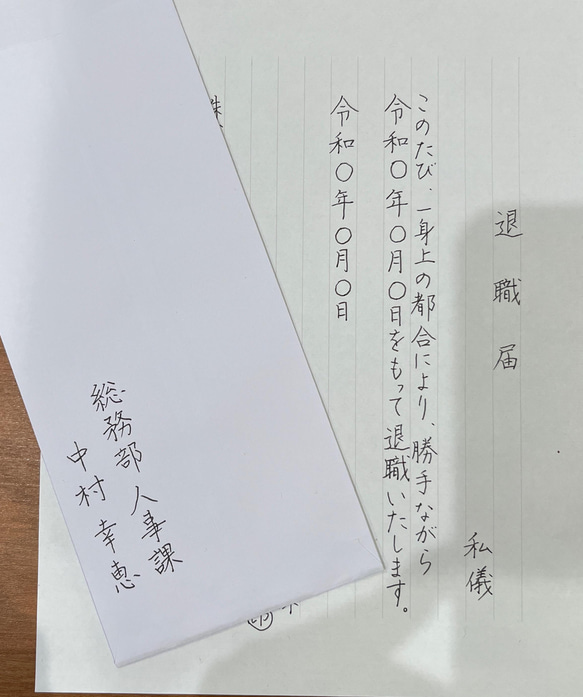 退職届
私儀
このたび、一身上の都合により、勝手ながら
令和〇年〇月〇日をもって退職いたします。
令和〇年〇月〇日
総務部 人事課
中村幸恵